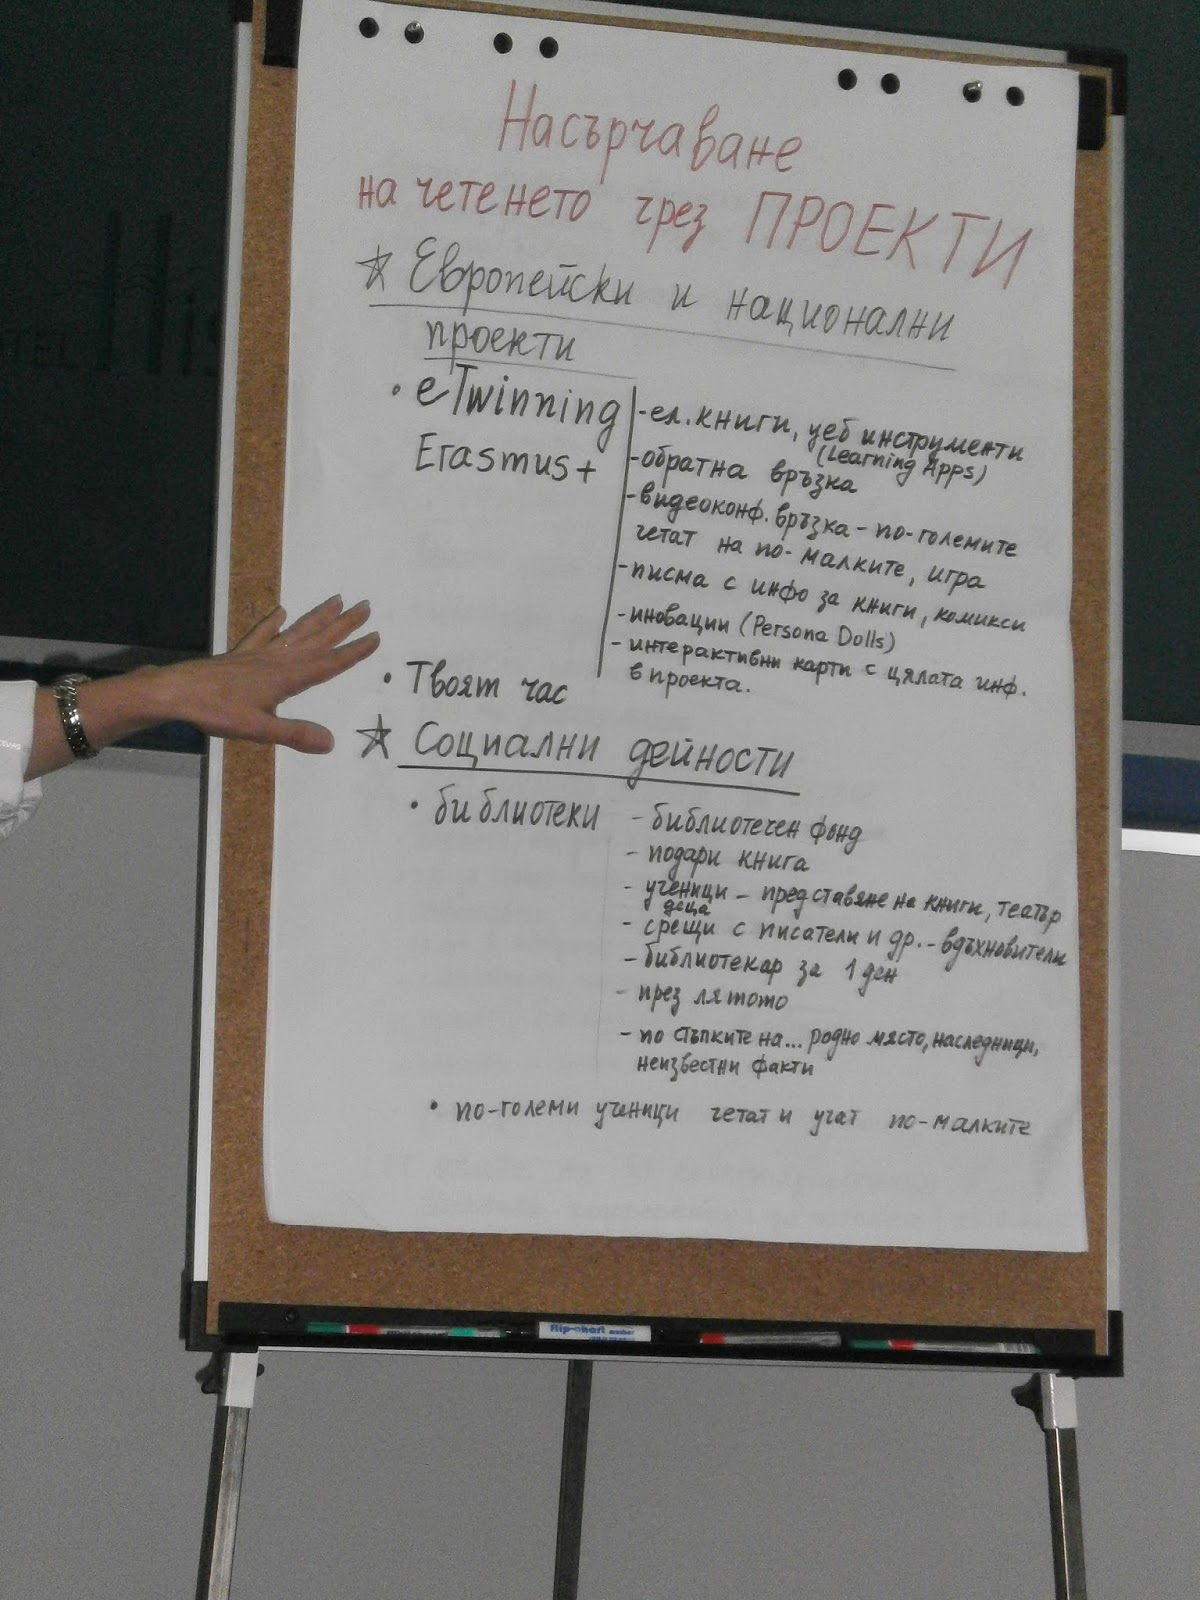 Насърчаване
на четенето чрез ПРОЕКТИ
☆ Европейски и национални
проекти
• eTwinning
Erasmus+
- ел. книги, уеб инструменти
(Learning Apps)
- обратна връзка
- видеоконф. връзка - по-големите
четат на по-малките, игра
- писма с инфо за книги, комикси
- иновации (Persona Dolls)
- интерактивни карти с цялата инф.
в проекта.
• Твоят час
☆ Социални дейности
• библиотеки
- библиотечен фонд
- подари книга
- ученици - представяне на книги, театър
деца
- срещи с писатели и др. - вдъхновители
- библиотекар за 1 ден
- през лятото
- по стъпките на... родно място, наследници,
неизвестни факти
• по-големи ученици четат и учат по-малките
flip-chart marker